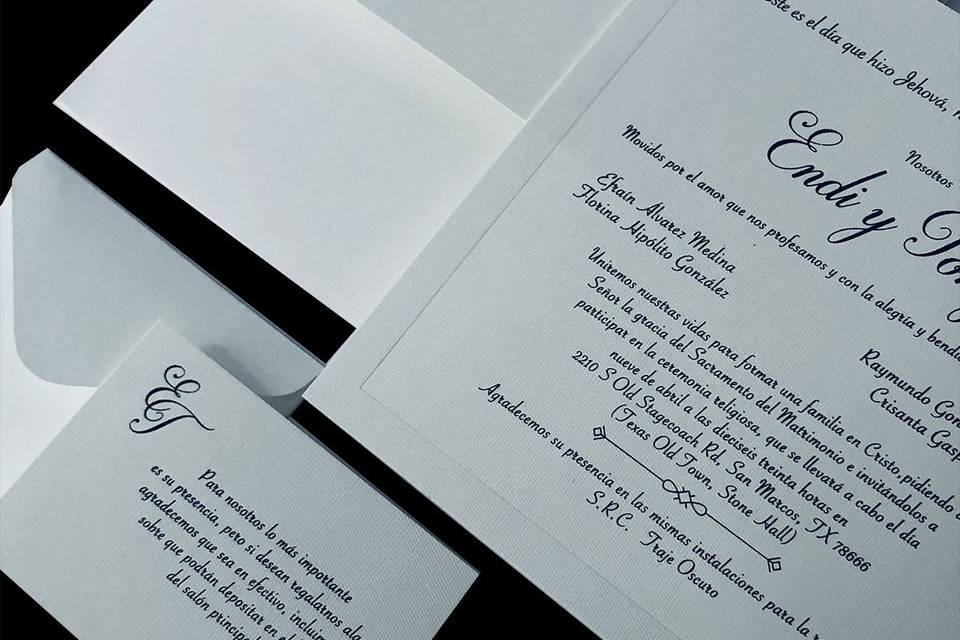 Este es el día que hizo Jehová,
Nosotros
Endi y
Movidos por el amor que nos profesamos y con la alegría y
Efraín Alvarez Medina
Florina Hipólito González
Raymundo
Crisanta
Uniremos nuestras vidas para formar una familia en Cristo, pidiendo
Señor la gracia del Sacramento del Matrimonio e invitándolos a
participar en la ceremonia religiosa, que se llevará a cabo el día
nueve de abril a las dieciseis treinta horas en
2210 S Old Stagecoach Rd, San Marcos, TX 78666
(Texas Old Town. Stone Hall)
Agradecemos su presencia en las mismas instalaciones para la
S.R.C. Traje Oscuro
ET
Para nosotros lo más importante
es su presencia, pero si desean regalarnos algo
agradecemos que sea en efectivo,
sobre que podrán depositar en el
del salón